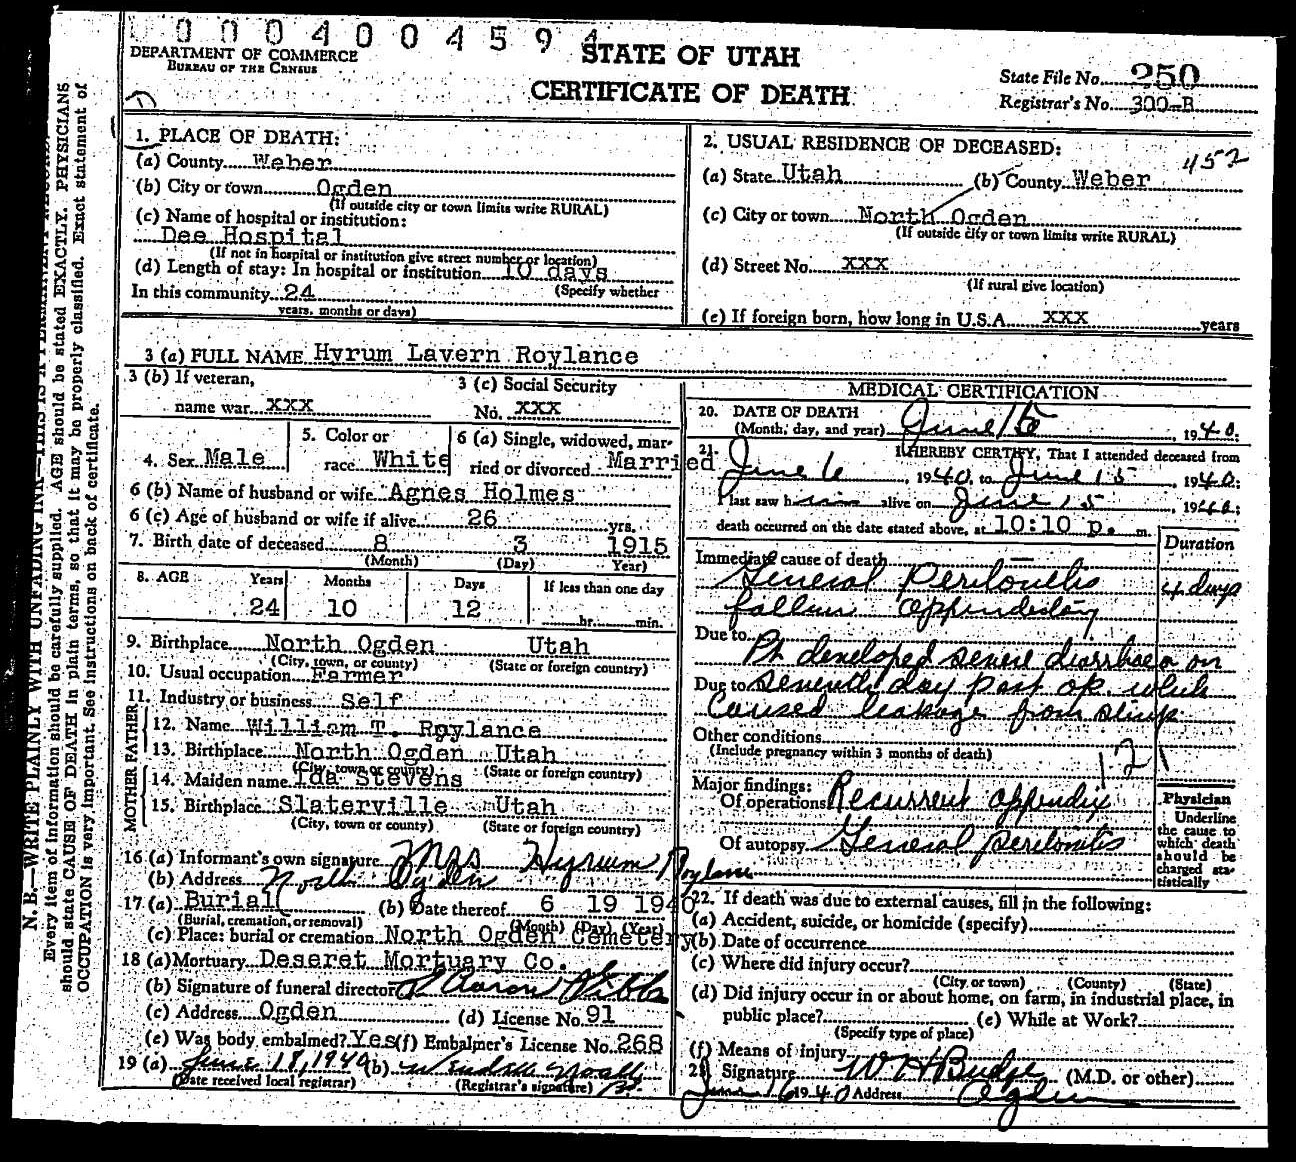 0 0 0 4 0 0 4 5 9 4
DEPARTMENT OF COMMERCE
BUREAU OF THE CENSUS
STATE OF UTAH
CERTIFICATE OF DEATH
State File No. 250
Registrar's No. 300-B
1. PLACE OF DEATH:
(a) County Weber
(b) City or town Ogden
(If outside city or town limits write RURAL)
(c) Name of hospital or institution:
Dee Hospital
(If not in hospital or institution give street number or location)
(d) Length of stay: In hospital or institution 10 days
In this community 24 (Specify whether
years, months or days)
2. USUAL RESIDENCE OF DECEASED: 452
(a) State Utah (b) County Weber
(c) City or town North Ogden
(If outside city or town limits write RURAL)
(d) Street No. XXX
(If rural give location)
(e) If foreign born, how long in U.S.A. XXX years
3 (a) FULL NAME Hyrum Lavern Roylance
3 (b) If veteran,
name war XXX
3 (c) Social Security
No. XXX
4. Sex Male
5. Color or
race White
6 (a) Single, widowed, mar-
ried or divorced Married
6 (b) Name of husband or wife Agnes Holmes
6 (c) Age of husband or wife if alive 26 yrs.
7. Birth date of deceased 8 3 1915
(Month) (Day) (Year)
8. AGE Years Months Days If less than one day
24 10 12 hr. min.
9. Birthplace North Ogden Utah
(City, town, or county) (State or foreign country)
10. Usual occupation Farmer
11. Industry or business Self
FATHER
12. Name William T. Roylance
13. Birthplace North Ogden Utah
(City, town or county) (State or foreign country)
MOTHER
14. Maiden name Ida Stevens
15. Birthplace Slaterville Utah
(City, town or county) (State or foreign country)
16 (a) Informant's own signature Mrs Hyrum Roylance
(b) Address North Ogden
17 (a) Burial (b) Date thereof 6 19 1940
(Burial, cremation, or removal) (Month) (Day) (Year)
(c) Place: burial or cremation North Ogden Cemetery
18 (a) Mortuary Deseret Mortuary Co.
(b) Signature of funeral director
(c) Address Ogden (d) License No. 91
(e) Was body embalmed? Yes (f) Embalmer's License No. 268
19 (a) June 18, 1940 (b)
(Date received local registrar) (Registrar's signature)
MEDICAL CERTIFICATION
20. DATE OF DEATH
(Month, day, and year) June 15, 1940:
21. I HEREBY CERTIFY, That I attended deceased from
June 6, 1940, to June 15, 1940:
I last saw him alive on June 15, 1940:
death occurred on the date stated above, at 10:10 p. m.
Duration
Immediate cause of death
General Peritonitis 4 days
follwin appendectomy
Due to
Pt developed severe diarrhoea on
Due to seventh day post op. which
caused leakage from stump
Other conditions
(Include pregnancy within 3 months of death) 121
Major findings:
Of operations Recurrent appendix
Of autopsy General peritonitis
Physician
Underline
the cause to
which death
should be
charged sta-
tistically
22. If death was due to external causes, fill in the following:
(a) Accident, suicide, or homicide (specify)
(b) Date of occurrence
(c) Where did injury occur?
(City or town) (County) (State)
(d) Did injury occur in or about home, on farm, in industrial place, in
public place? (e) While at Work?
(Specify type of place)
(f) Means of injury
23. Signature W H Budge (M.D. or other)
June 16 1940 Address Ogden
N. B.—WRITE PLAINLY WITH UNFADING INK—THIS IS A PERMANENT RECORD
Every item of information should be carefully supplied. AGE should be stated EXACTLY. PHYSICIANS
should state CAUSE OF DEATH in plain terms, so that it may be properly classified. Exact statement of
OCCUPATION is very important. See instructions on back of certificate.